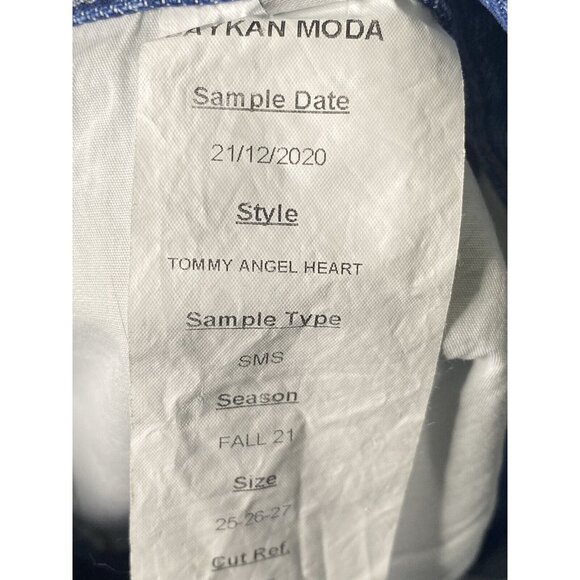 MODA
Sample Date
21/12/2020
Style
TOMMY ANGEL HEART
Sample Type
SMS
Season
FALL 21
Size
25-26-27
Cut Ref.